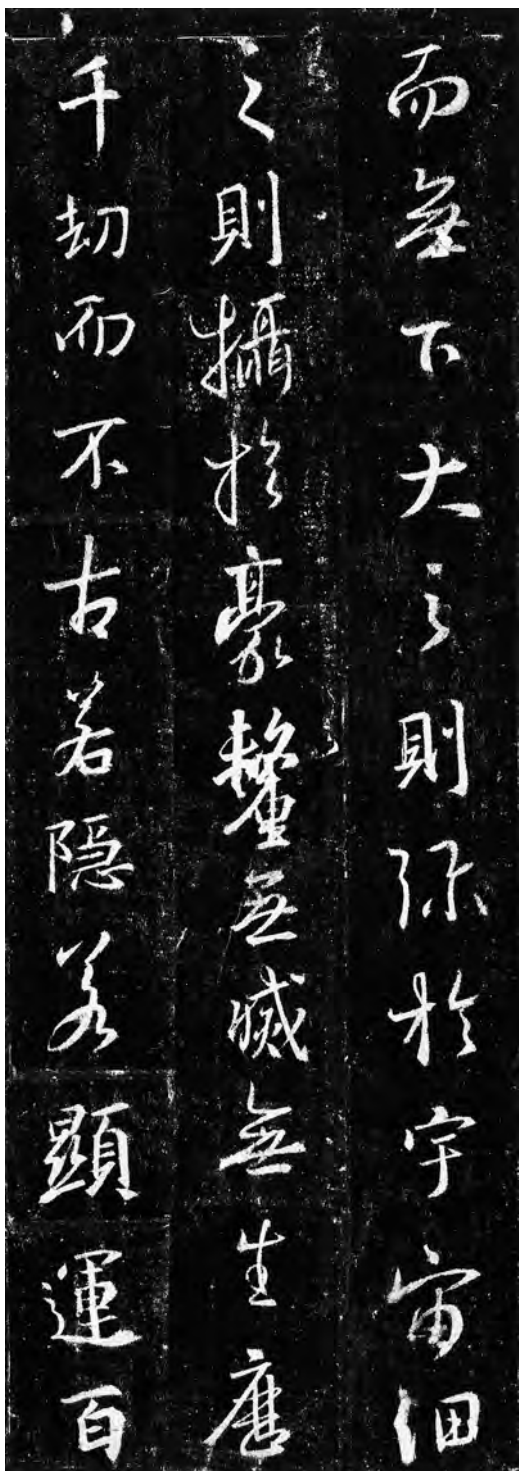 而無下大之則彌於宇宙細
之則攝於豪釐無滅無生歷
千劫而不古若隱若顯運百